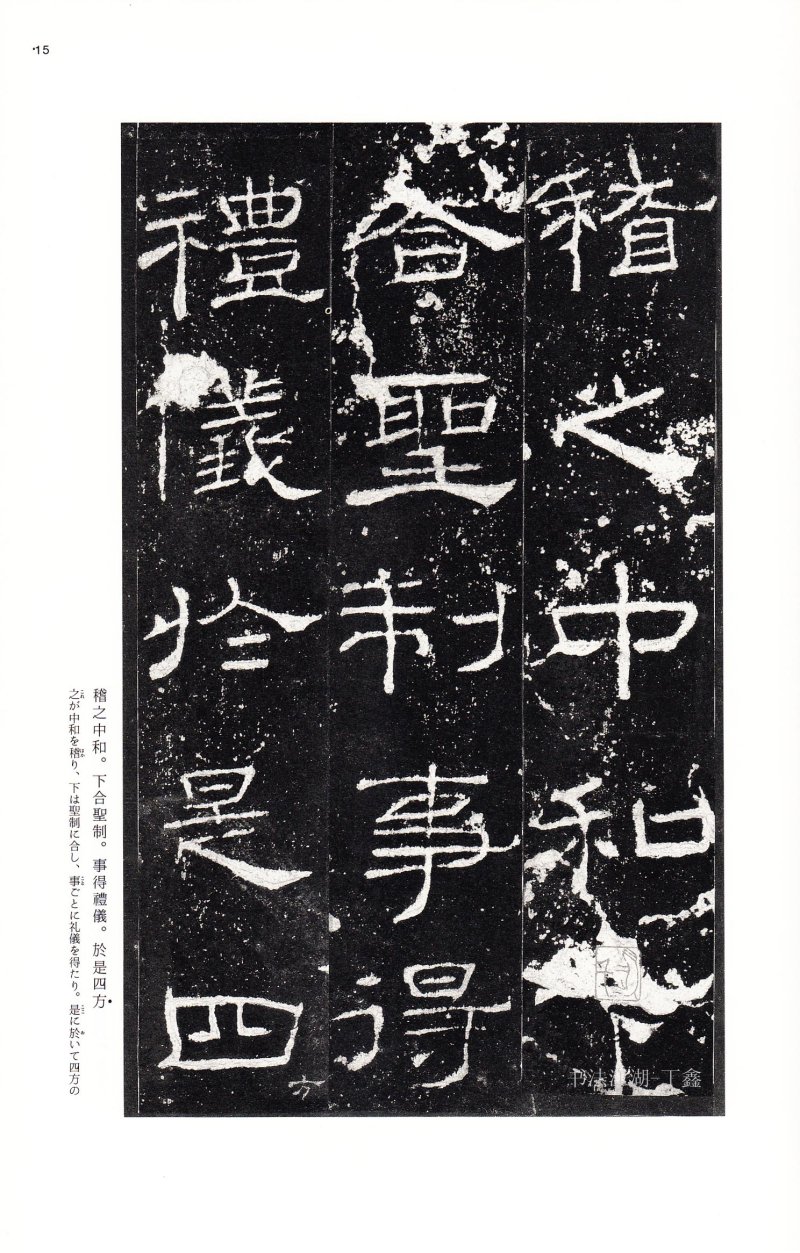 ·15
稽之中和下
合聖制事得
禮儀於是四
方
稽之中和。下合聖制。事得禮儀。於是四方
之が中和を稽り、下は聖制に合し、事ごとに礼儀を得たり。是に於いて四方の
书法江湖-丁鑫